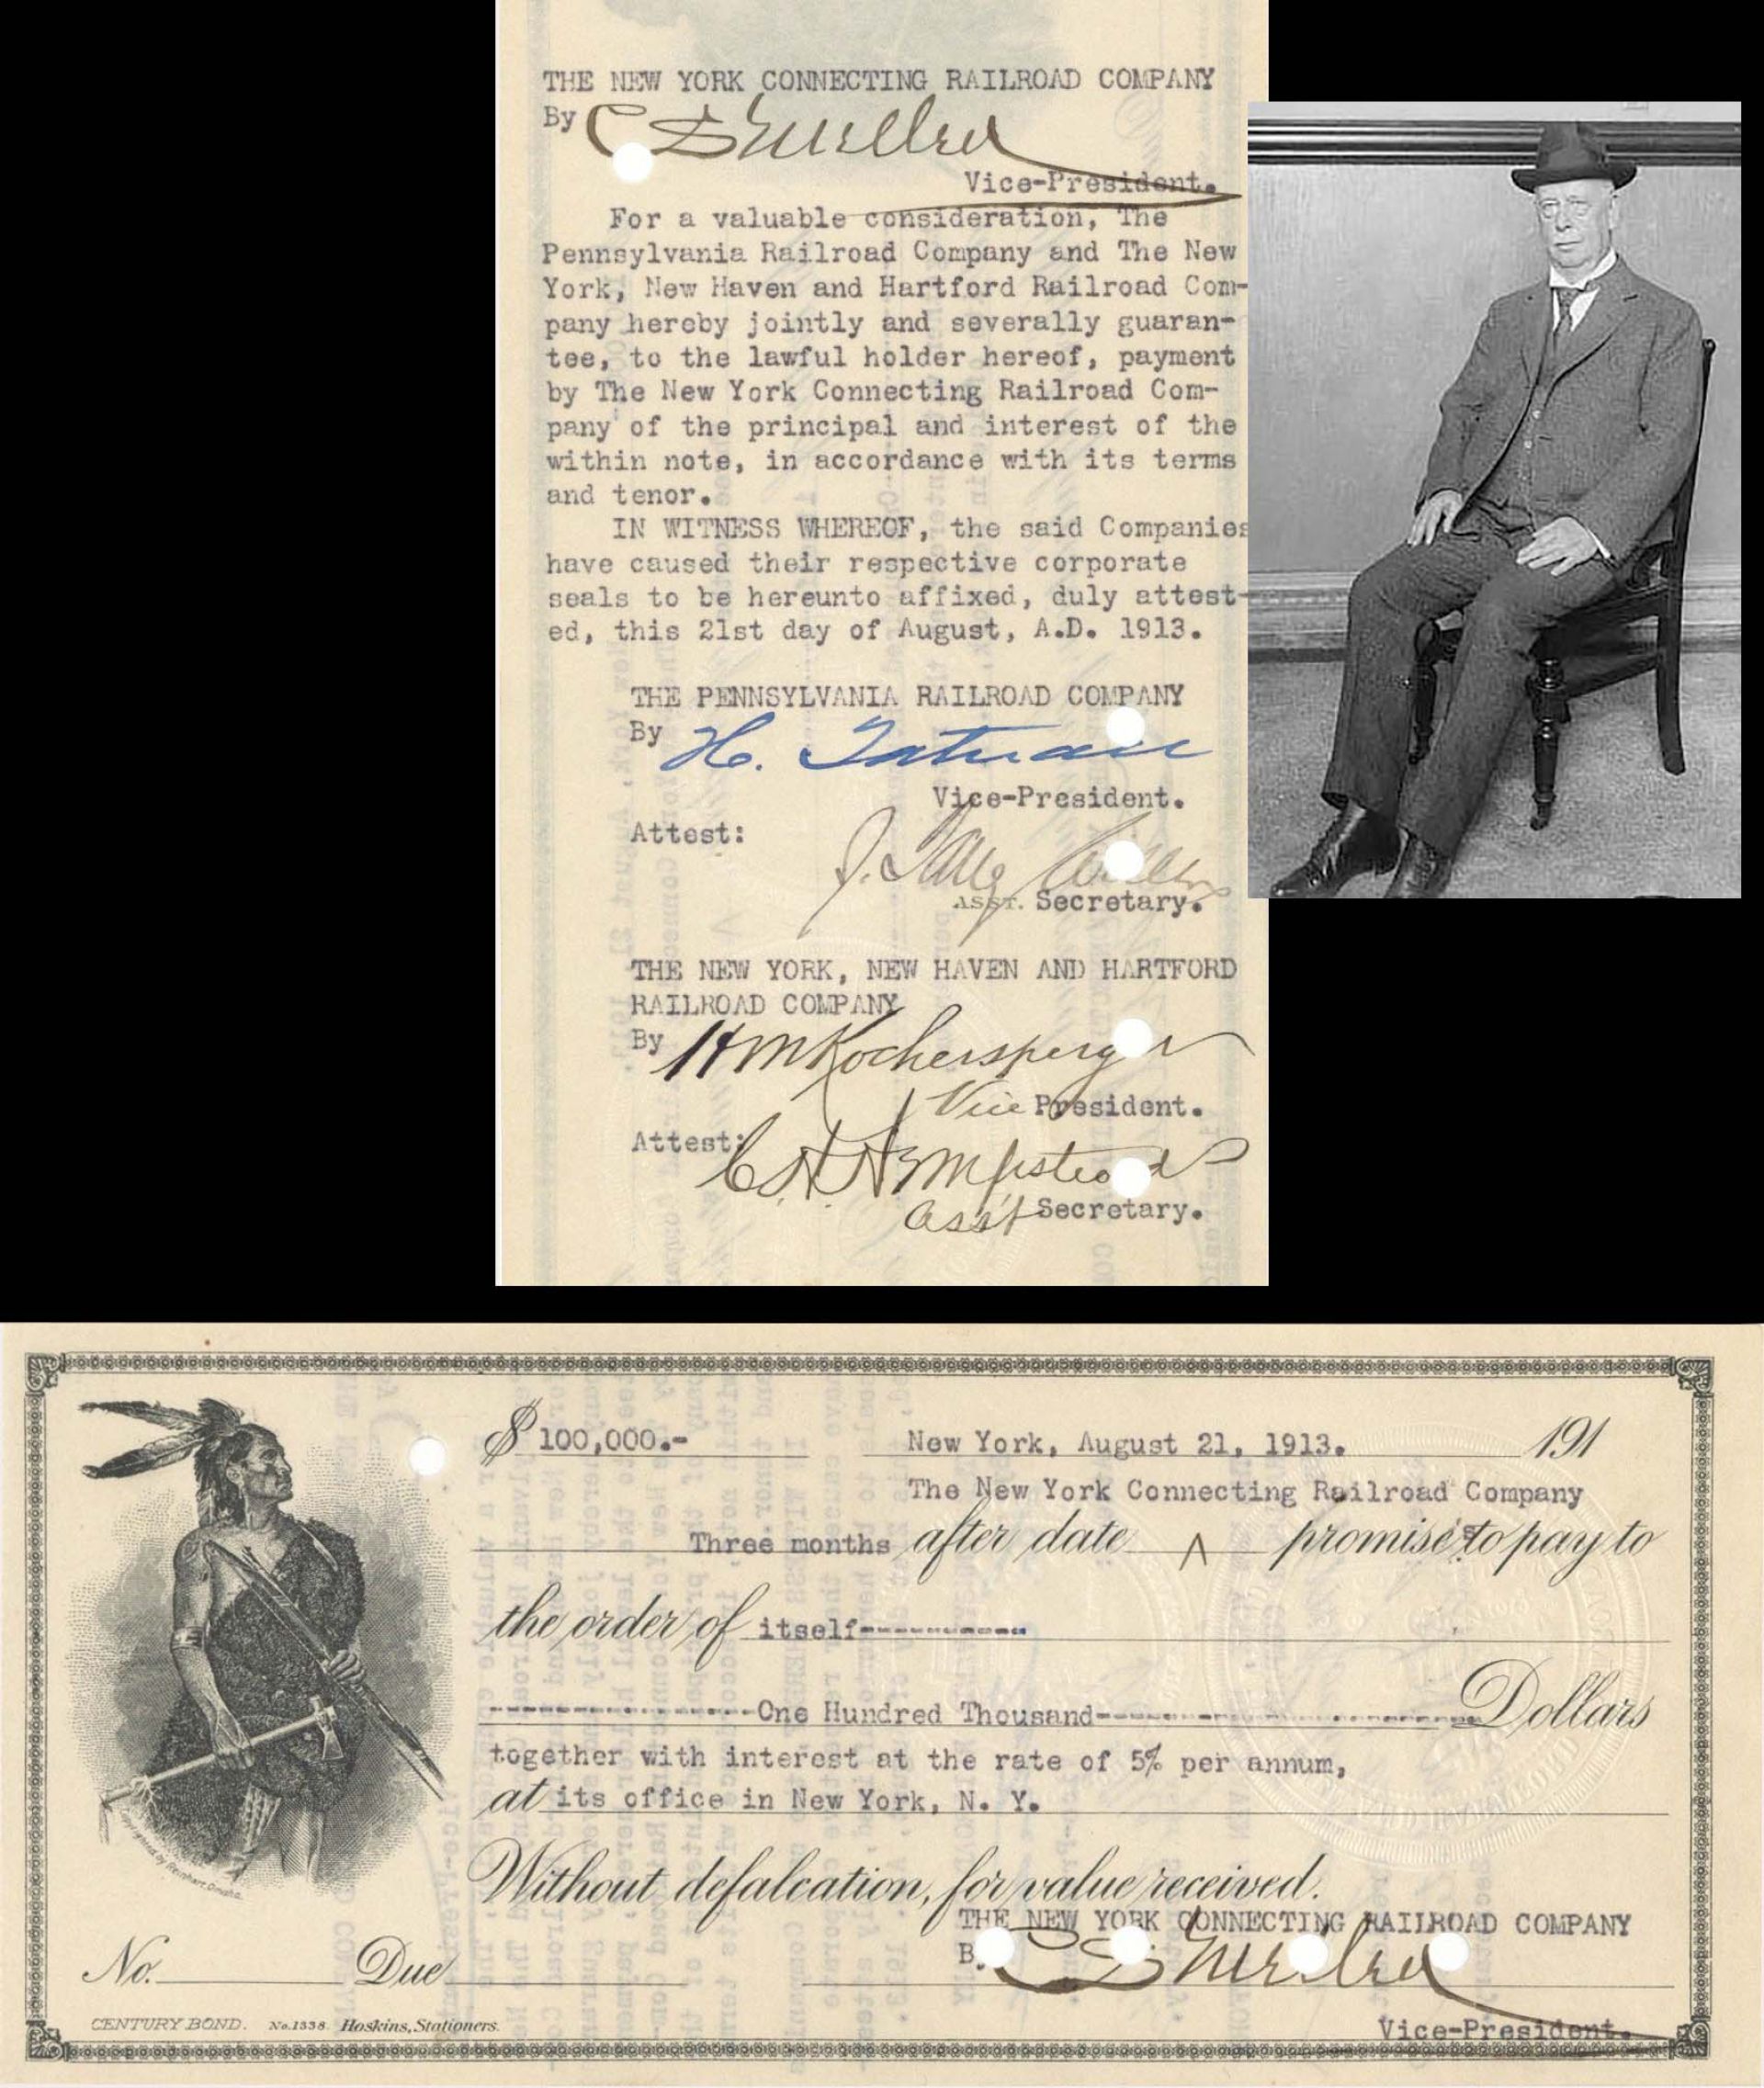 THE NEW YORK CONNECTING RAILROAD COMPANY
By C S Mellen
Vice-President.
For a valuable consideration, The
Pennsylvania Railroad Company and The New
York, New Haven and Hartford Railroad Com-
pany hereby jointly and severally guaran-
tee, to the lawful holder hereof, payment
by The New York Connecting Railroad Com-
pany of the principal and interest of the
within note, in accordance with its terms
and tenor.
IN WITNESS WHEREOF, the said Companies
have caused their respective corporate
seals to be hereunto affixed, duly attest-
ed, this 21st day of August, A.D. 1913.
THE PENNSYLVANIA RAILROAD COMPANY
By H. Tatnall
Vice-President.
Attest:
J.
ASST. Secretary.
THE NEW YORK, NEW HAVEN AND HARTFORD
RAILROAD COMPANY
By H M Kochersperger
Vice President.
Attest:
C. H. Hempstead
Asst Secretary.
$ 100,000.- New York, August 21, 1913. 191
The New York Connecting Railroad Company
Three months after date ^ promises to pay to
the order of itself------------
-----------------One Hundred Thousand------------------------Dollars
together with interest at the rate of 5% per annum,
at its office in New York, N. Y.
Without defalcation, for value received.
THE NEW YORK CONNECTING RAILROAD COMPANY
B. C S Mellen
No. Due
Vice-President.
CENTURY BOND. No. 1338 Hoskins, Stationers.
Copyrighted by Reinhart Omaha.